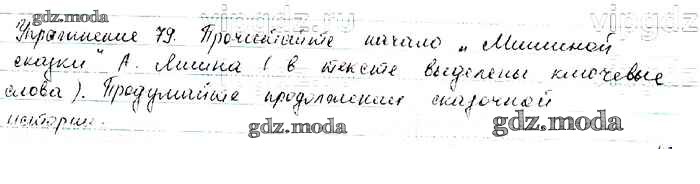 gdz.moda
vipgdz.ru
vipgdz
Упражнение 79. Прочитайте начало „Мишиной
сказки" А. Лишина ( в тексте выделены ключевые
слова ). Продумайте продолжение сказочной
истории.
gdz.moda
gdz.moda